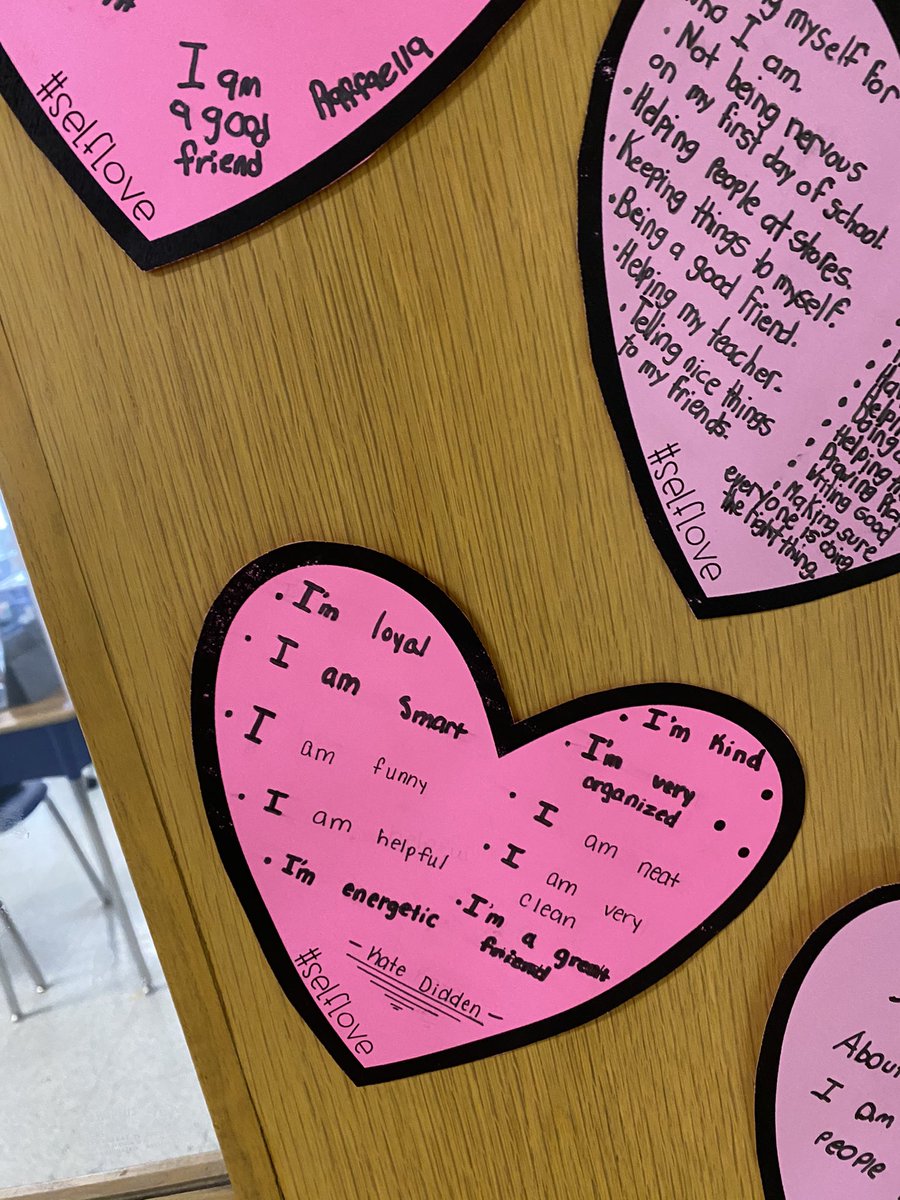 I am
a good
friend
Raffaella
#selflove
myself for
who I am.
• Not being nervous
on my first day of school.
• Helping people at stores.
• Keeping things to myself.
• Being a good friend.
• Helping my teacher.
• Telling nice things
to my friends.
• Helping
• Drawing
• Writing Good
• Making sure
everyone is doing
the right thing.
#selflove
• I'm loyal
• I am Smart
• I am funny
• I am helpful
• I'm energetic
• I'm Kind
• I'm very
organized
• I am neat
• I am very
clean
• I'm a great
friend
- Kate Didden -
#selflove
About
I am
people